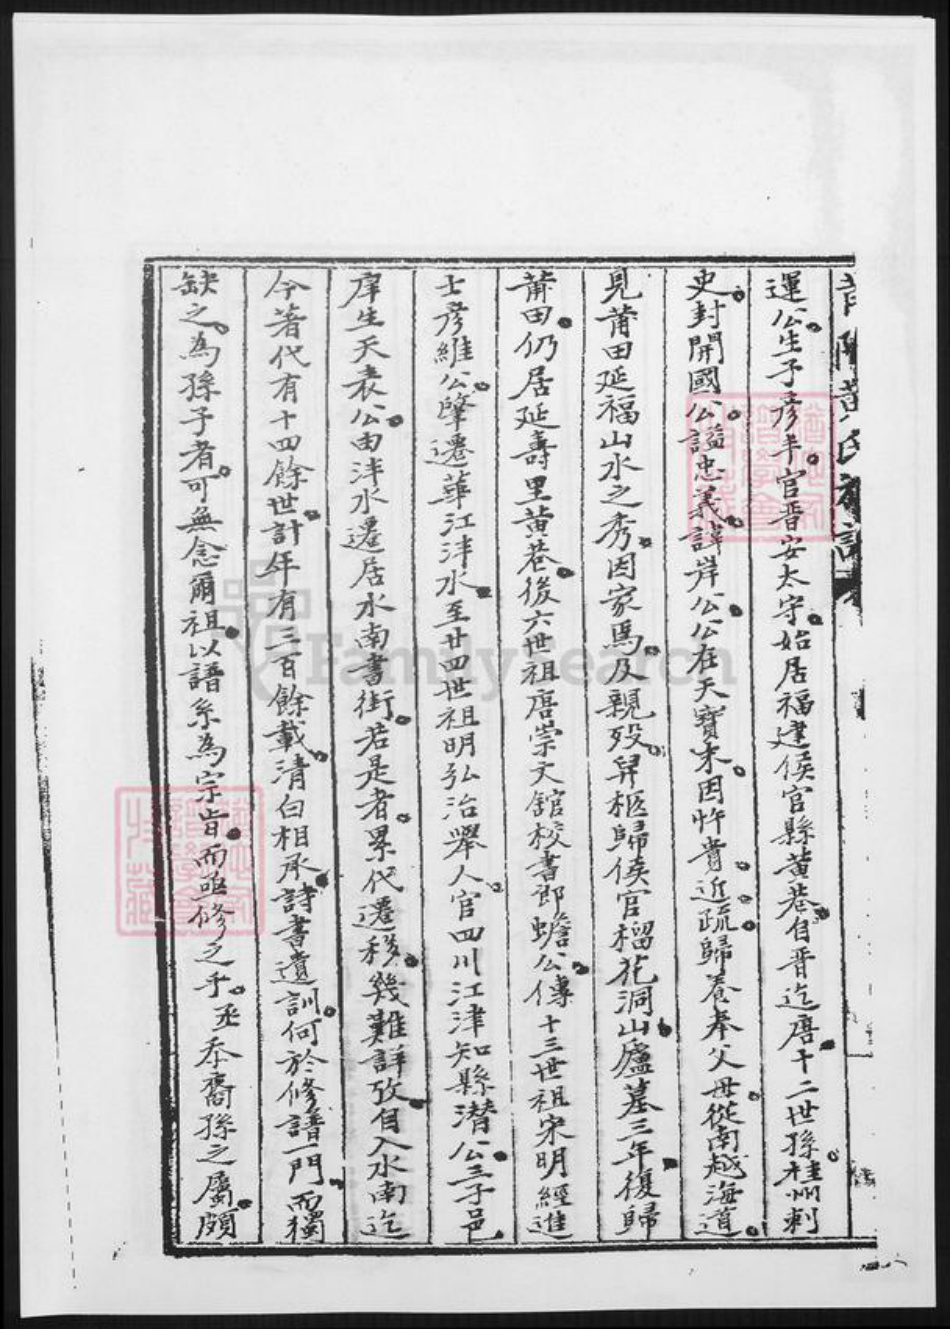 莆陽黃氏
運公生子彦丰官晋安太守始居福建侯官縣黄巷自晋迄唐十二世孫桂州刺
史封開國公謚忠義諱岸公公在天寳末因忤貴近疏歸養奉父母從南越海道
見莆田延福山水之秀因家焉及親殁舁柩歸侯官榴花洞山廬墓三年復歸
莆田仍居延壽里黄巷後六世祖唐崇文舘校書郎蟾公傳十三世祖宋明經進
士彦維公肇遷華江津水至廿四世祖明弘治舉人官四川江津知縣潛公三子邑
庠生天表公由津水遷居水南書街若是者累代遷移幾難詳攷自入水南迄
今著代有十四餘世計年有三百餘載清白相承詩書遺訓何於修譜一門而獨
缺之為孫子者可無念爾祖以譜系為宗旨而亟修之乎丞忝裔孫之屬頗
FamilySearch